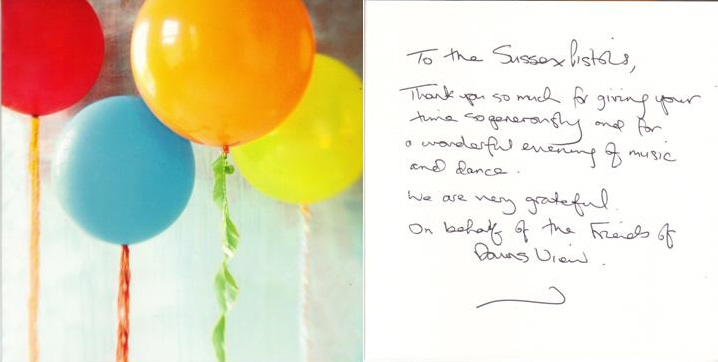 To the Sussex Pistols,
Thank you so much for giving your
time so generously and for
a wonderful evening of music
and dance.
We are very grateful.
On behalf of the Friends of
Downs View.